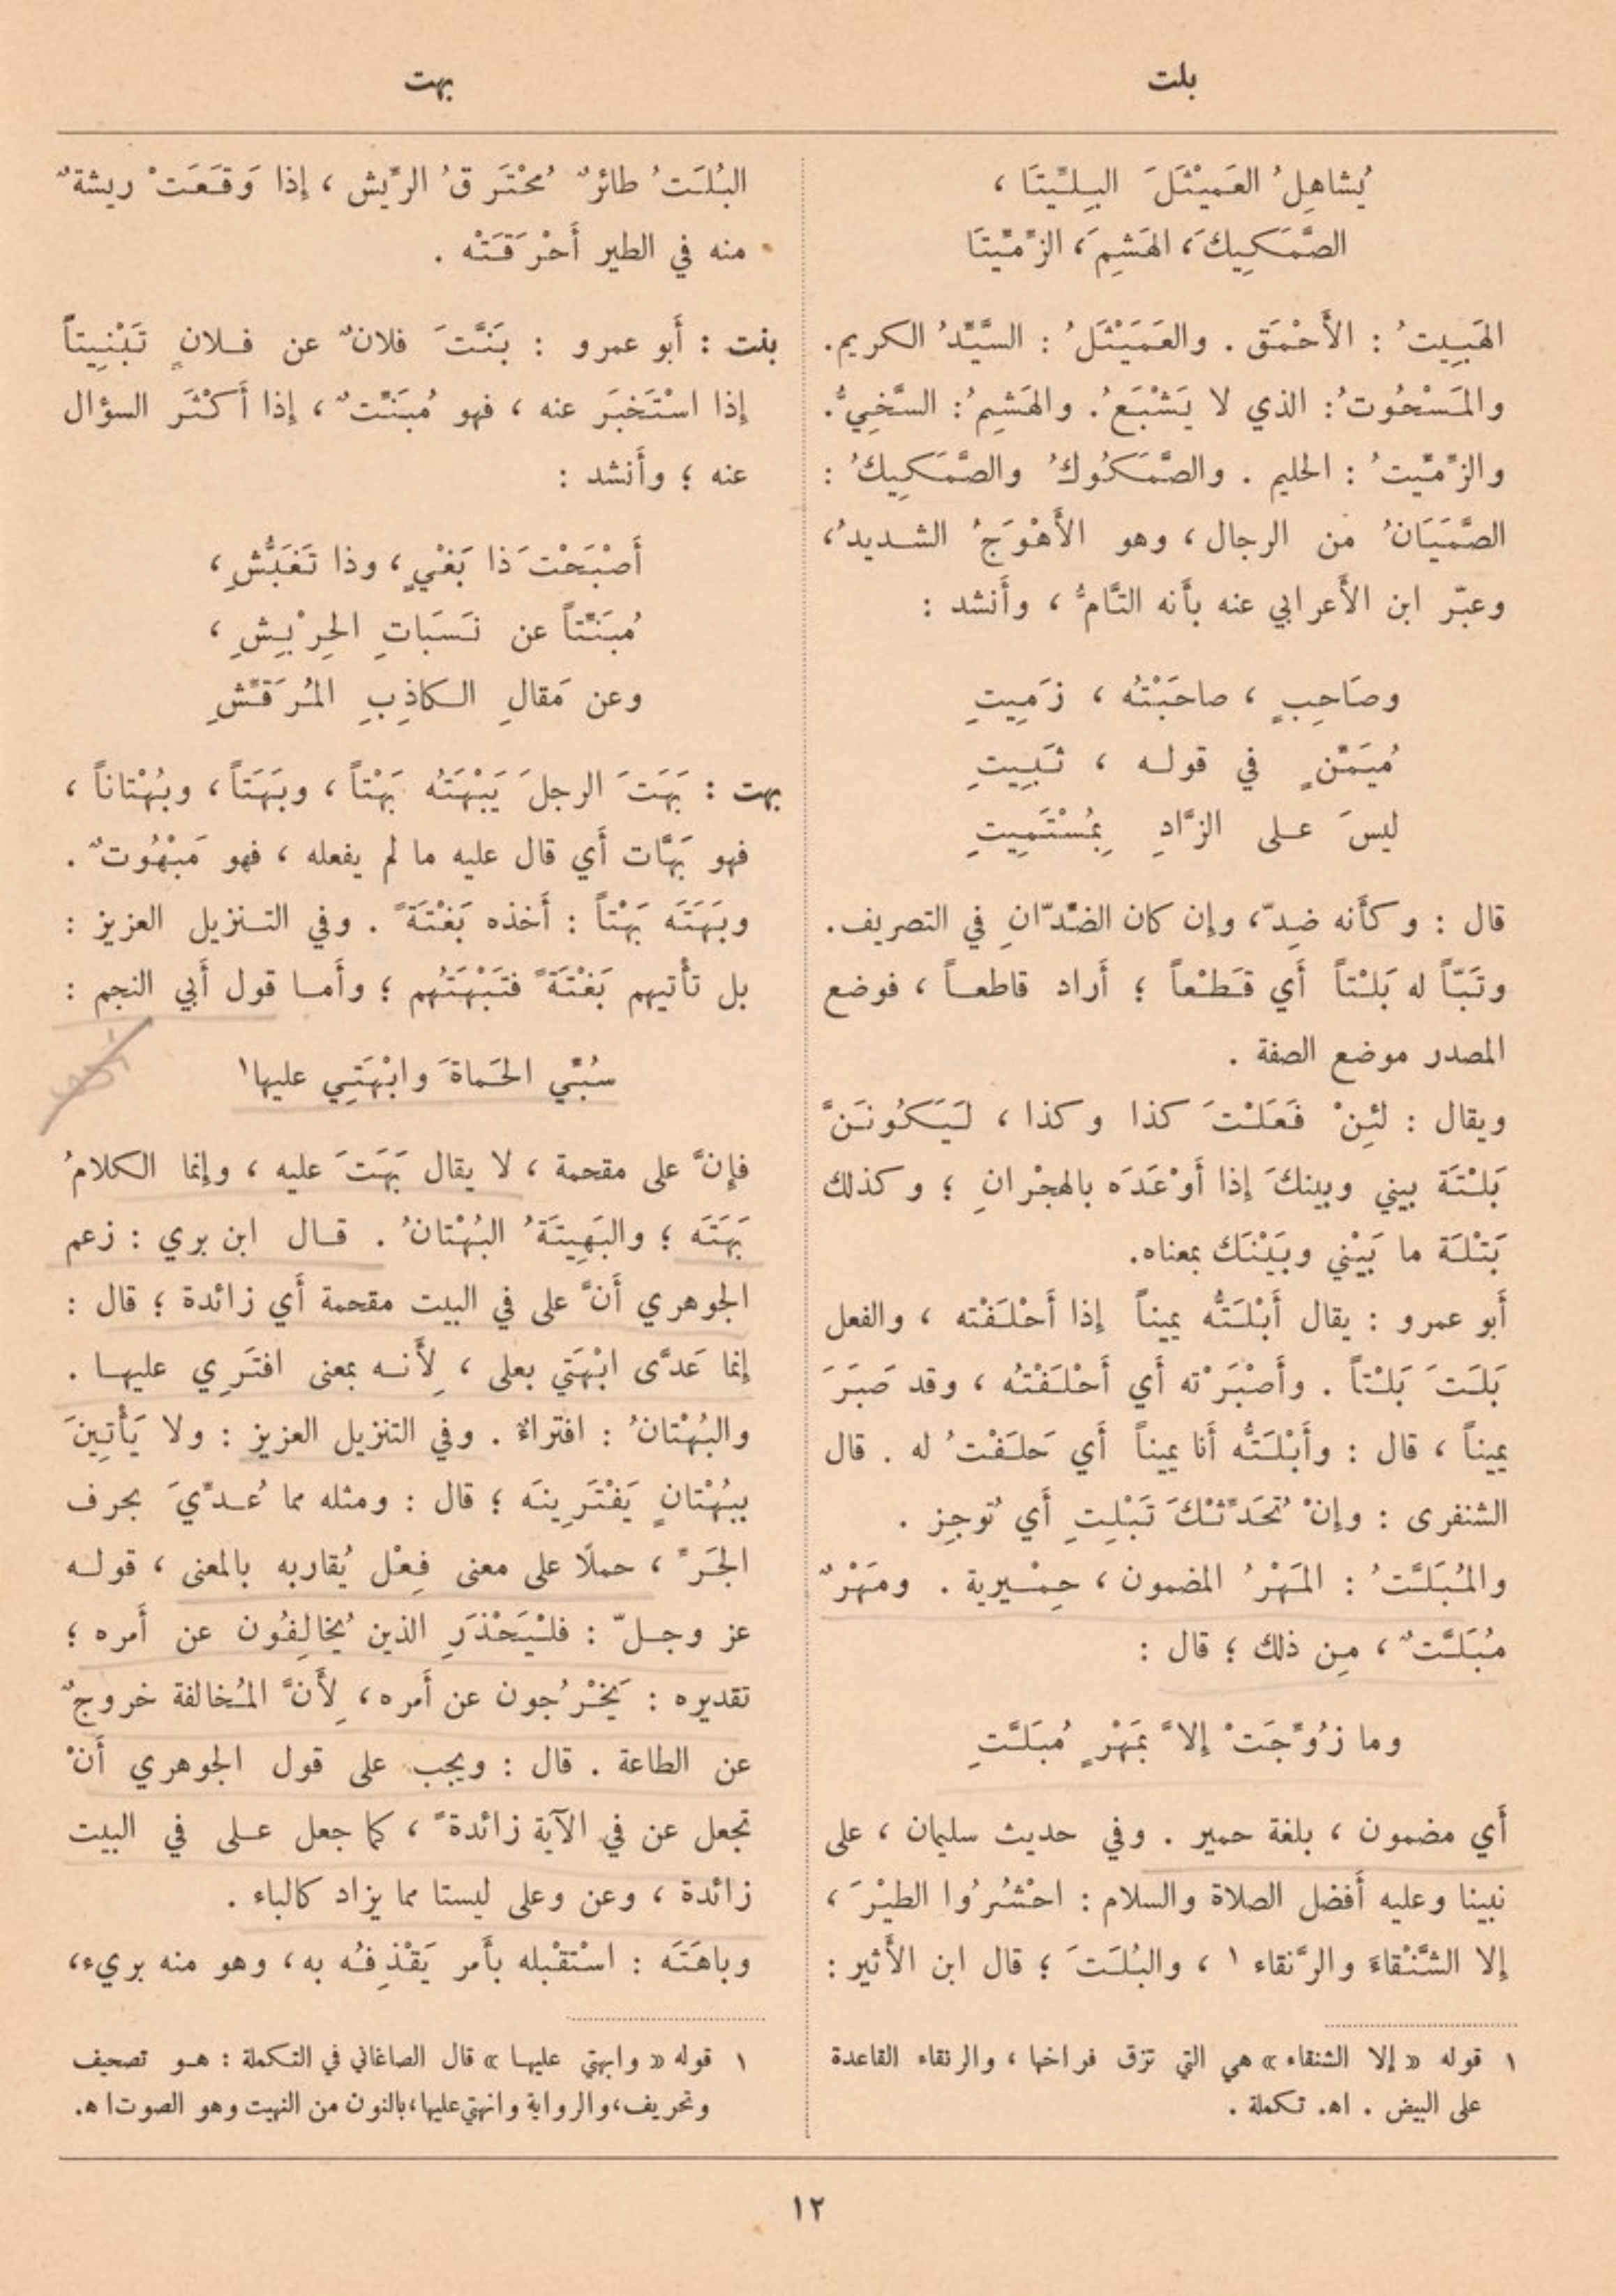 بلت
بهت
يُشاهِلُ العَمَيْثَلَ البِلِّيتَا ،
الصَّمَكِيكَ، الهَشِمَ، الزِّمِّيتَا
الهَبِيتُ : الأَحْمَق . والعَمَيْثَلُ : السَّيِّدُ الكريم.
والمَسْحُوتُ: الذي لا يَشْبَعُ. والهَشِمُ: السَّخِيُّ.
والزِّمِّيتُ : الحليم . والصَّمَكُوكُ والصَّمَكِيكُ :
الصَّمَيَانُ من الرجال ، وهو الأَهْوَجُ الشديدُ،
وعبّر ابن الأَعرابي عنه بأَنه التَّامُّ ، وأَنشد :
وصَاحِبٍ ، صاحَبْتُه ، زَمِيتِ
مُيَمِّنٍ في قوله ، ثَبِيتِ
ليسَ على الزَّادِ بِمُسْتَمِيتِ
قال : وكأَنه ضِدّ، وإن كان الضِّدّانِ في التصريف.
وتَبّاً له بَلْتاً أَي قَطْعاً ؛ أَراد قاطعاً ، فوضع
المصدر موضع الصفة .
ويقال : لئِنْ فَعَلْتَ كذا وكذا ، لَيَكُونَنَّ
بَلْتَة بيني وبينكَ إذا أَوْعَدَه بالهِجْرانِ ؛ وكذلك
بَتْلَة ما بَيْني وبَيْنَك بمعناه.
أَبو عمرو : يقال أَبْلَتُّه يميناً إذا أَحْلَفْته ، والفعل
بَلَتَ بَلْتاً . وأَصْبَرْته أَي أَحْلَفْتُه ، وقد صَبَرَ
يميناً ، قال : وأَبْلَتُّه أَنا يميناً أَي حَلَفْتُ له . قال
الشنفرى : وإنْ تُحَدِّثْكَ تَبْلِتِ أَي تُوجِز .
والمُبَلَّتُ : المَهْرُ المضمون ، حِمْيرية . ومَهْرٌ
مُبَلَّتٌ ، مِن ذلك ؛ قال :
وما زُوِّجَتْ إلاَّ بمَهْرٍ مُبَلَّتِ
أَي مضمون ، بلغة حمير . وفي حديث سليمان ، على
نبينا وعليه أَفضل الصلاة والسلام : احْشُرُوا الطيْرَ ،
إلا الشَّنْقاءَ والرَّنقاء ١ ، والبُلَتَ ؛ قال ابن الأَثير :
١ قوله « إلا الشنقاء » هي التي تزق فراخها ، والرنقاء القاعدة
على البيض . اهـ. تكملة .
البُلَتُ طائرٌ مُحْتَرِقُ الرِّيش ، إذا وَقَعَتْ ريشةٌ
منه في الطير أَحْرَقَتْه .
بنت : أَبو عمرو : بَنَّتَ فلانٌ عن فلانٍ تَبْنِيتاً
إذا اسْتَخبَر عنه ، فهو مُبَنِّتٌ ، إذا أَكْثَر السؤال
عنه ؛ وأَنشد :
أَصْبَحْتَ ذا بَغْيٍ، وذا تَغَبُّشِ ،
مُبَنِّتاً عن نَسَبَاتِ الحِرْبِشِ ،
وعن مَقالِ الكاذِبِ المُرَقِّشِ
بهت : بَهَتَ الرجلَ يَبْهَتُه بَهْتاً ، وبَهَتاً ، وبُهْتاناً ،
فهو بَهَّات أَي قال عليه ما لم يفعله ، فهو مَبْهُوتٌ .
وبَهَتَه بَهْتاً : أَخذه بَغْتَةً . وفي التنزيل العزيز :
بل تأْتيهم بَغْتَةً فتَبْهَتُهم ؛ وأَما قول أَبي النجم :
سُبِّي الحَماةَ وابْهَتِي عليها١
فإنَّ على مقحمة ، لا يقال بَهَتَ عليه ، وإنما الكلامُ
بَهَتَه ؛ والبَهِيتَةُ البُهْتانُ . قال ابن بري : زعم
الجوهري أَنَّ على في البيت مقحمة أَي زائدة ؛ قال :
إنما عَدَّى ابْهَتي بعلى ، لِأَنه بمعنى افتَرِي عليها .
والبُهْتانُ : افتراءٌ . وفي التنزيل العزيز : ولا يَأْتِينَ
ببُهْتانٍ يَفْتَرِينَه ؛ قال : ومثله مما عُدِّيَ بحرف
الجَرِّ ، حملًا على معنى فِعْل يُقاربه بالمعنى ، قوله
عز وجلّ : فلْيَحْذَرِ الذين يُخالِفُون عن أَمره ؛
تقديره : يَخْرُجون عن أَمره ، لِأَنَّ المُخالفة خروجٌ
عن الطاعة . قال : ويجب على قول الجوهري أَنْ
تجعل عن في الآية زائدةً ، كما جعل على في البيت
زائدة ، وعن وعلى ليستا مما يزاد كالباء .
وباهَتَه : اسْتقْبله بأَمر يَقْذِفُه به ، وهو منه بريء،
١ قوله « وابهتي عليها » قال الصاغاني في التكملة : هو تصحيف
وتحريف، والرواية وانهتي عليها، بالنون من النهيت وهو الصوت ا هـ.
١٢